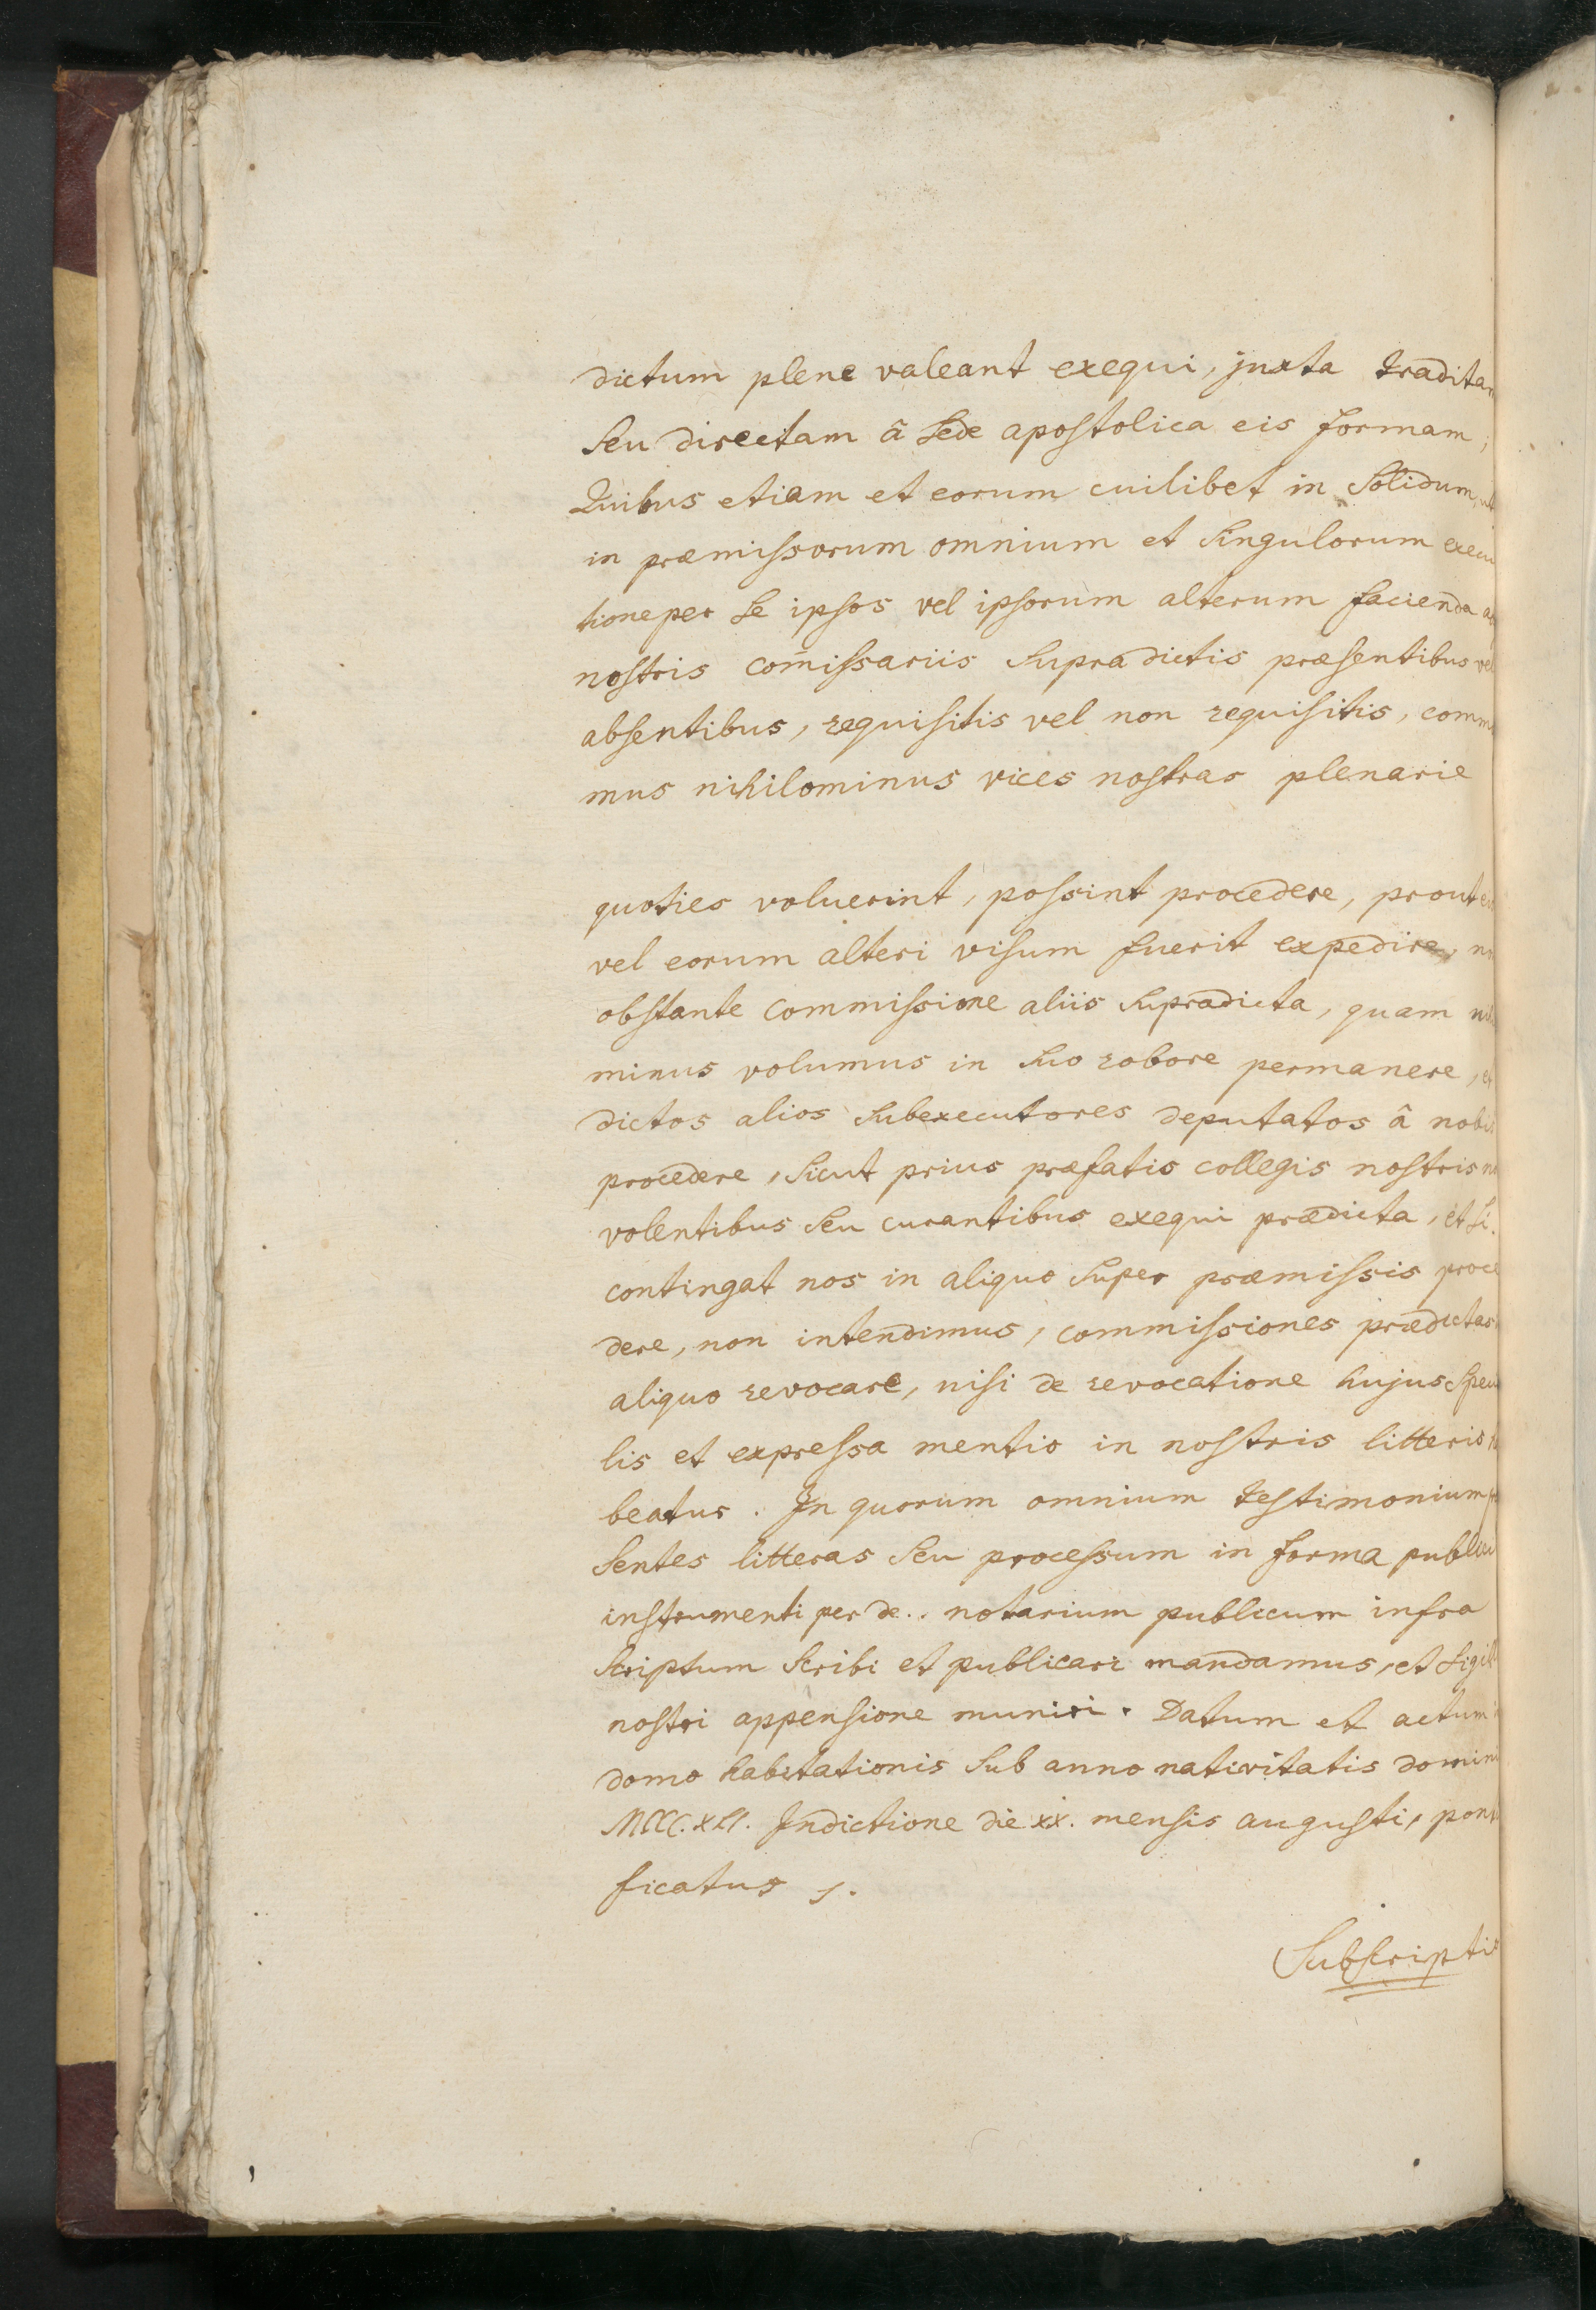 dictum plene valeant exequi, juxta tradita
seu directam â sede apostolica eis formam;
Quibus etiam et eorum cuilibet in solidum,
in præmissorum omnium et singulorum execu
tione per se ipsos vel ipsorum alterum facienda
nostris com̃issariis supradictis præsentibus vel
absentibus, requisitis vel non requisitis, comm
mus nihilominus vices nostras plenarie
quoties voluerint, possint procedere, prout
vel eorum alteri visum fuerit expedire,
obstante commissione aliis supradicta, quam
minus volumus in suo robore permanere,
dictos alios subexecutores deputatos â nobis
procedere, sicut prius præfatis collegis nostris
volentibus seu curantibus exequi prædicta, et si
contingat nos in aliquo super præmissis proce
dere, non intendimus, commissiones prædictas
aliquo revocare, nisi de revocatione hujus spec
lis et expressa mentio in nostris litteris
beatur. In quorum omnium testimonium
sentes litteras seu processum in forma publici
instrumenti per de.. notarium publicum infra
scriptum scribi et publicari mandamus, et sigil
nostri appensione muniri. Datum et actum
domo habitationis sub anno nativitatis domini
MCCC.XLI. Indictione die xx. mensis augusti, ponti
ficatus s.
Subscriptio